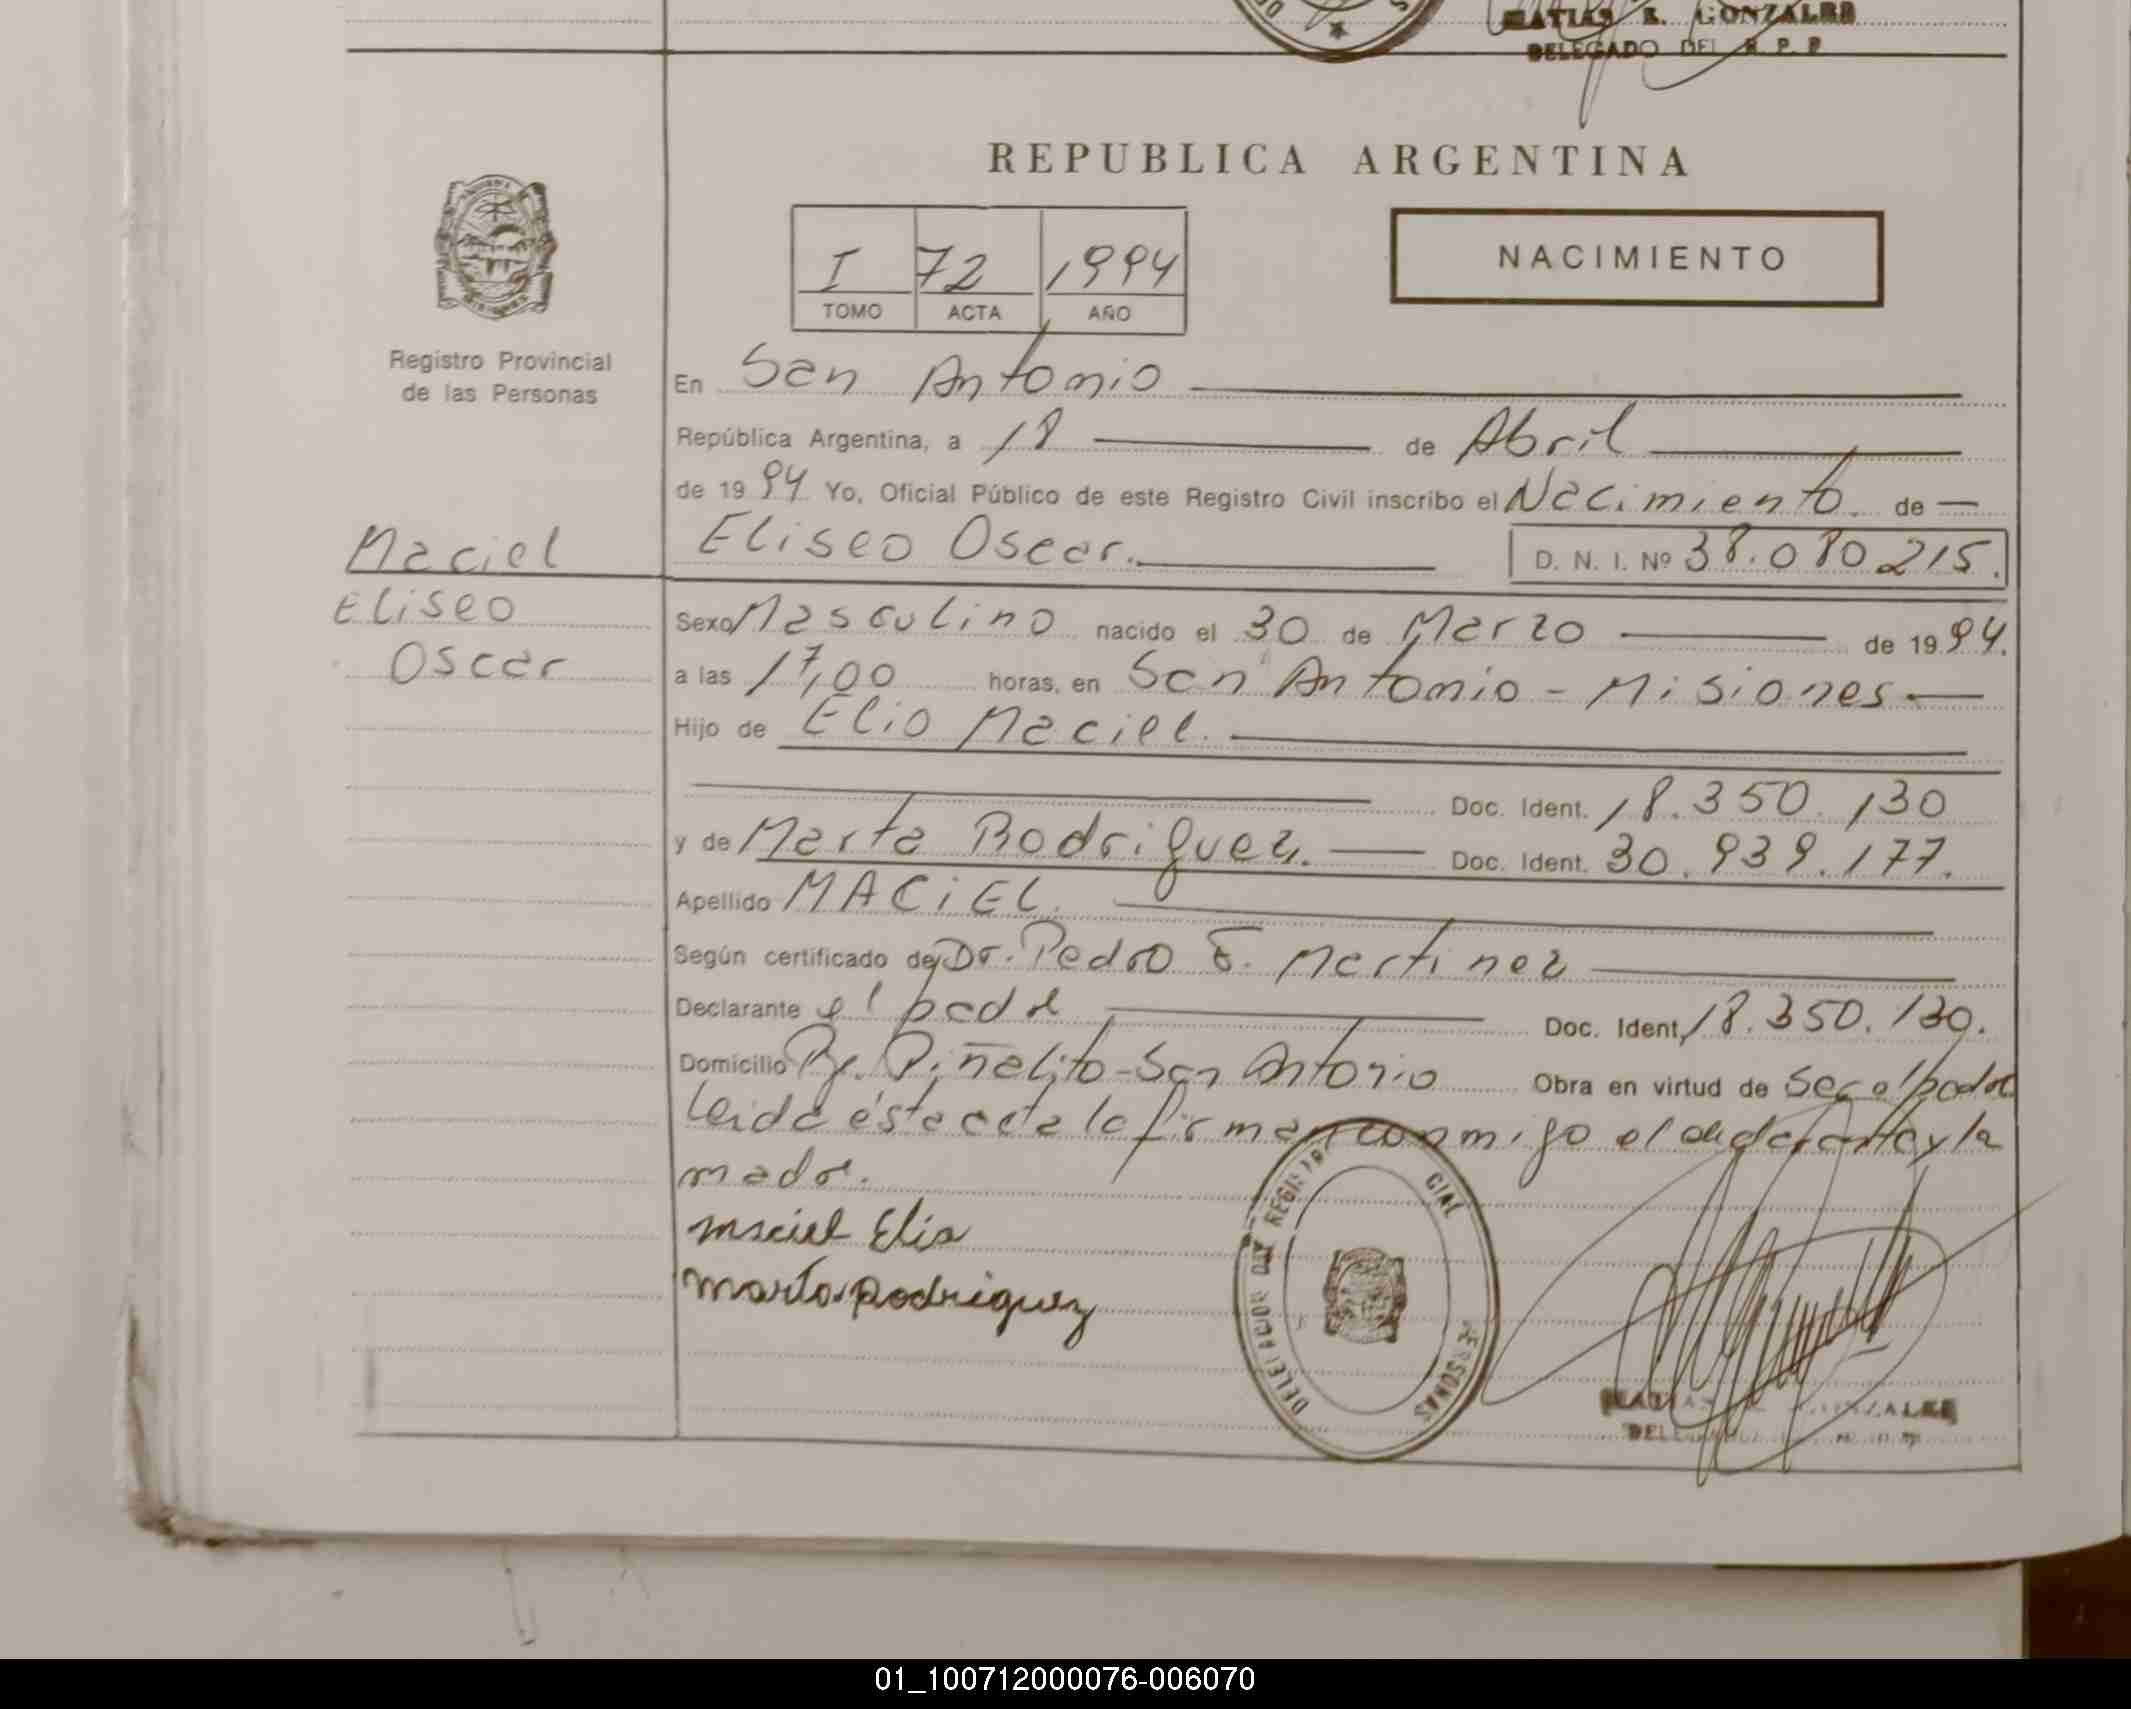 MATIAS E. GONZALEZ
DELEGADO DEL R. P. P
REPUBLICA ARGENTINA
I 72 1994
TOMO ACTA AÑO
NACIMIENTO
Registro Provincial
de las Personas
En San Antonio
República Argentina, a 18 de Abril
de 1994 Yo, Oficial Público de este Registro Civil inscribo el Nacimiento de
Eliseo Oscar.
D. N. I. Nº 38.080.215.
Maciel
Eliseo
Oscar
Sexo Masculino nacido el 30 de Marzo de 1994.
a las 17,00 horas, en San Antonio - Misiones
Hijo de Elio Maciel.
Doc. Ident. 18.350.130
y de Marta Rodriguez. Doc. Ident. 30.939.177.
Apellido MACIEL.
Según certificado de Dr. Pedro E. Martinez
Declarante el padre Doc. Ident. 18.350.130.
Domicilio Piñalito - San Antonio Obra en virtud de ser el padre
leida ésta acta la firman conmigo el declarante y la
madre.
Maciel Elio
Marta Rodriguez
DELEGACION REGISTRO CIAL PERSONAS
MATIAS GONZALEZ
DELEGADO
01_100712000076-006070